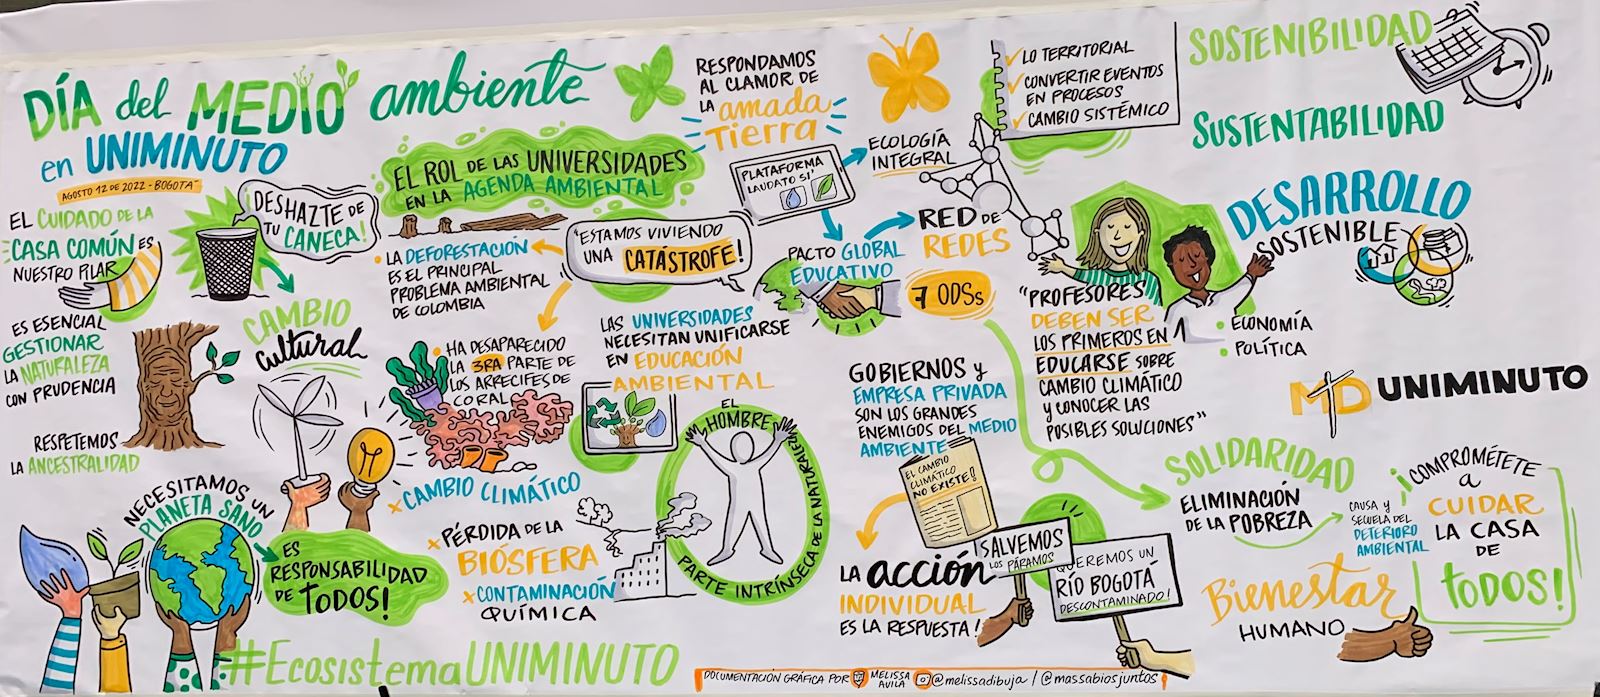 DÍA del MEDIO ambiente
en UNIMINUTO
AGOSTO 12 DE 2022 - BOGOTA
EL CUIDADO DE LA
CASA COMÚN ES
NUESTRO PILAR
DESHAZTE DE
TU CANECA!
ES ESENCIAL
GESTIONAR
LA NATURALEZA
CON PRUDENCIA
CAMBIO
Cultural
RESPETEMOS
LA ANCESTRALIDAD
NECESITAMOS UN
PLANETA SANO
ES
RESPONSABILIDAD
DE TODOS!
#EcosistemaUNIMINUTO
EL ROL DE LAS UNIVERSIDADES
EN LA AGENDA AMBIENTAL
"ESTAMOS VIVIENDO
UNA CATÁSTROFE!
• LA DEFORESTACIÓN
ES EL PRINCIPAL
PROBLEMA AMBIENTAL
DE COLOMBIA
• HA DESAPARECIDO
LA 3RA PARTE DE
LOS ARRECIFES DE
CORAL
x CAMBIO CLIMÁTICO
x PÉRDIDA DE LA
BIÓSFERA
x CONTAMINACIÓN
QUÍMICA
LAS UNIVERSIDADES
NECESITAN UNIFICARSE
EN EDUCACIÓN
AMBIENTAL
EL HOMBRE
PARTE INTRÍNSECA DE LA NATURALEZA
RESPONDAMOS
AL CLAMOR DE
LA amada
Tierra
PLATAFORMA
LAUDATO SI'
ECOLOGÍA
INTEGRAL
PACTO GLOBAL
EDUCATIVO
RED DE
REDES
7 ODSs
GOBIERNOS Y
EMPRESA PRIVADA
SON LOS GRANDES
ENEMIGOS DEL MEDIO
AMBIENTE
EL CAMBIO
CLIMÁTICO
NO EXISTE!
LA acción
INDIVIDUAL
ES LA RESPUESTA!
¡SALVEMOS
LOS PÁRAMOS
QUEREMOS UN
RÍO BOGOTÁ
DESCONTAMINADO!
✓ LO TERRITORIAL
✓ CONVERTIR EVENTOS
EN PROCESOS
✓ CAMBIO SISTÉMICO
SOSTENIBILIDAD
SUSTENTABILIDAD
DESARROLLO
SOSTENIBLE
"PROFESORES
DEBEN SER
LOS PRIMEROS EN
EDUCARSE SOBRE
CAMBIO CLIMÁTICO
Y CONOCER LAS
POSIBLES SOLUCIONES"
• ECONOMÍA
• POLÍTICA
UNIMINUTO
SOLIDARIDAD
ELIMINACIÓN
DE LA POBREZA
CAUSA Y
SECUELA DEL
DETERIORO
AMBIENTAL
Bienestar
HUMANO
¡COMPROMÉTETE
A
CUIDAR
LA CASA
DE
TODOS!
DOCUMENTACIÓN GRÁFICA POR MELISSA AVILA @melissadibuja / @massabiosjuntos